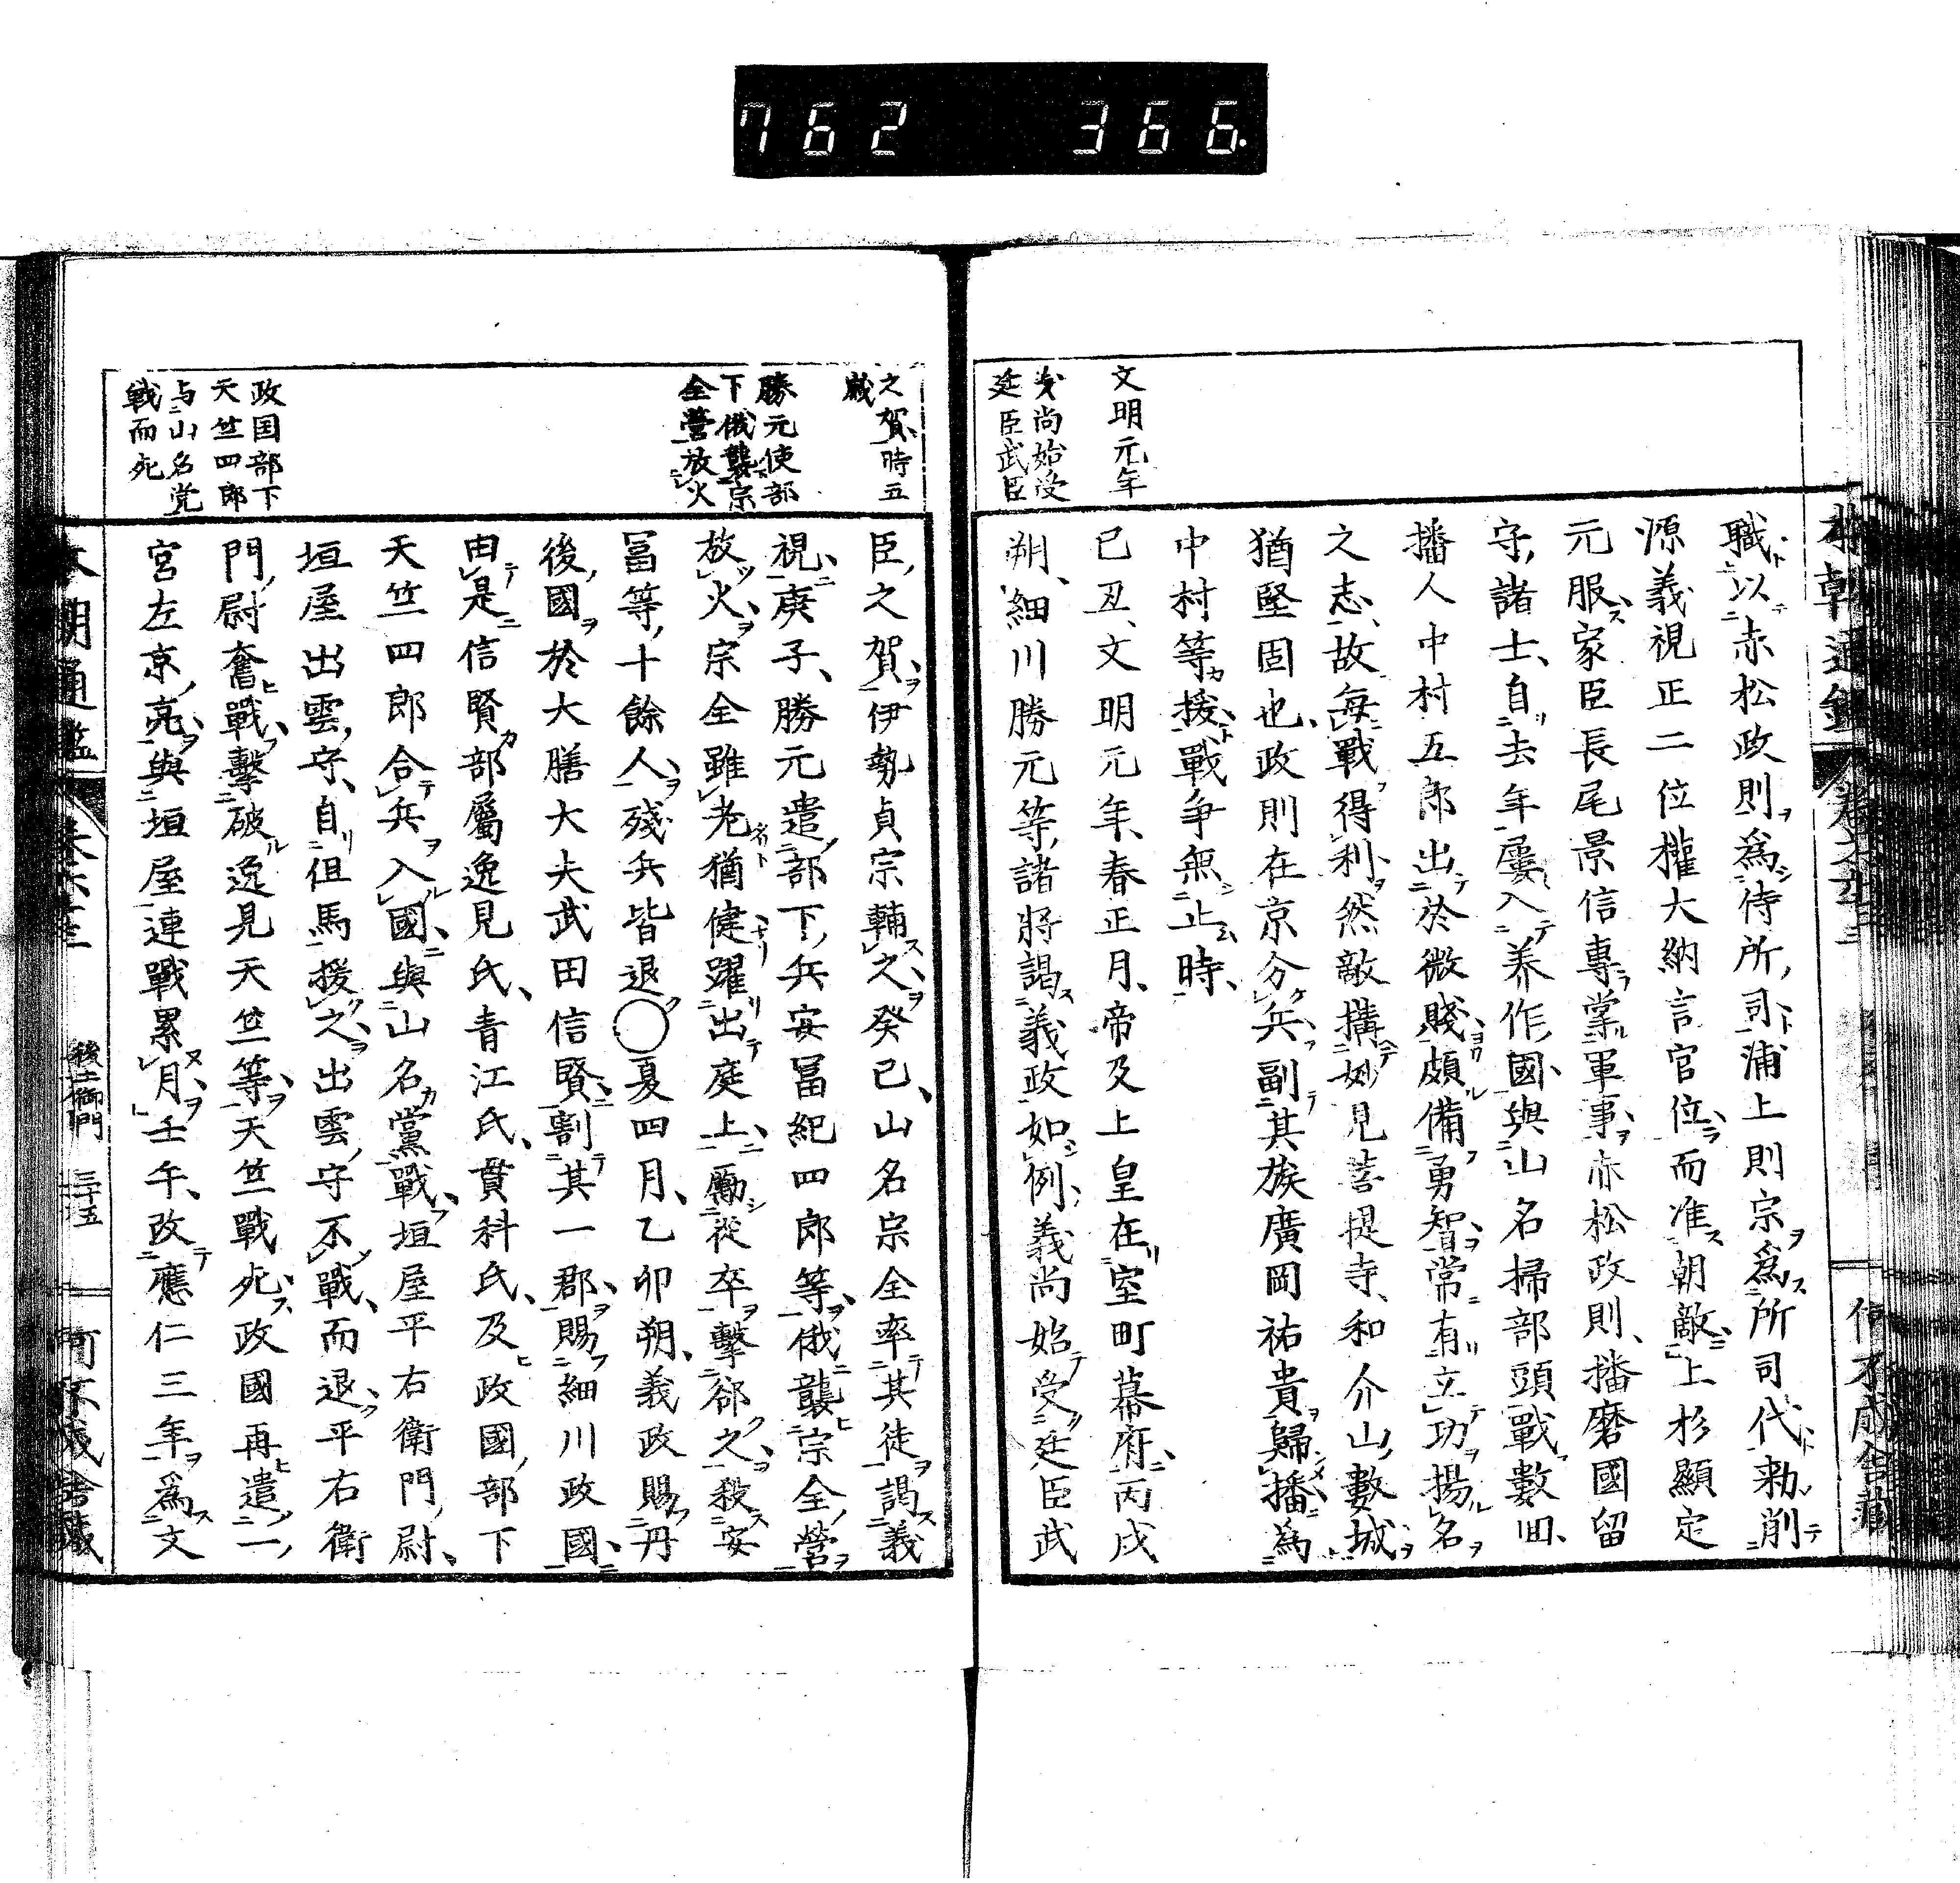 762 366.
文明元年
義尚始受
廷臣武臣
職以赤松政則爲侍所司浦上則宗爲所司代勅削
源義視正二位權大納言官位而准朝敵上杉顯定
元服家臣長尾景信專掌軍事亦松政則播磨國留
守諸士自去年屢入美作國與山名掃部頭戰數回
播人中村五郎出於微賤頗備勇智常有立功揚名
之志故每戰得利然敵搆妙見菩提寺和介山數城
猶堅固也政則在京分兵副其族廣岡祐貴歸播為
中村等援戰爭無止時
己丑文明元年春正月帝及上皇在室町幕府丙戌
朔細川勝元等諸將謁義政如例義尚始受廷臣武
之賀時五
歲
勝元使部
下俄襲宗
全營放火
政国部下
天竺四郎
与山名党
戦而死
臣之賀伊勢貞宗輔之癸巳山名宗全率其徒謁義
視庚子勝元遣部下兵安冨紀四郎等俄襲宗全營
放火宗全雖老猶健躍出庭上勵從卒擊郤之殺安
冨等十餘人殘兵皆退○夏四月乙卯朔義政賜丹
後國於大膳大夫武田信賢割其一郡賜細川政國
由是信賢部屬逸見氏青江氏貫科氏及政國部下
天竺四郎合兵入國與山名黨戰垣屋平右衛門尉
垣屋出雲守自但馬援之出雲守不戰而退平右衛
門尉奮戰擊破逸見天竺等天竺戰死政國再遣一
宮左京亮與垣屋連戰累月壬午改應仁三年爲文
本朝通鑑 後土御門 三十五